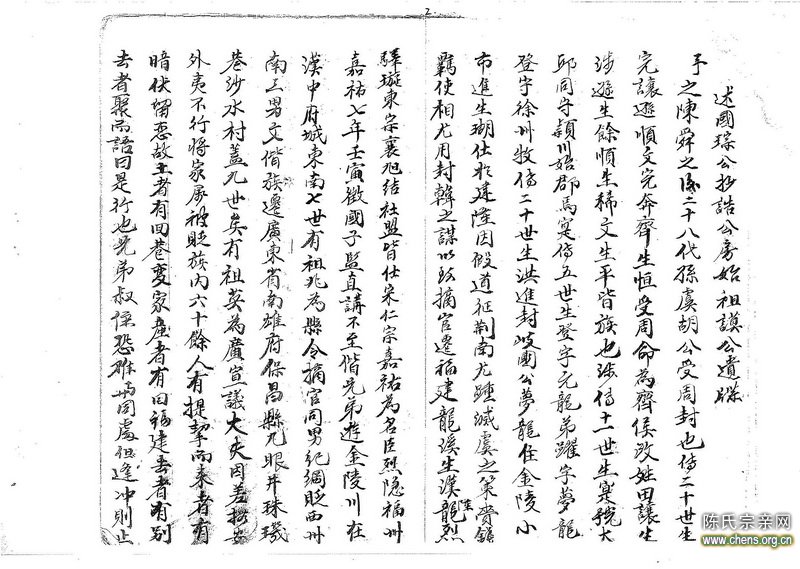 2.
述國琮公抄誥公房始祖謨公遺牒
予之陳舜之後二十八代孫虞胡公受周封也傳二十世生
完讓遜順文完奔齊生恒受周命為齊侯改姓田讓生
涉遜生餘順生稀文生平皆族也涉傳十一世生寔號大
邱同守穎川始郡焉寔傳五世生登字元龍弟躍字夢龍
登字徐州牧傳二十世生洪進封岐國公夢龍任金陵小
市進生瑚仕於建隆因假道征荆南尤踵滅虞之策貴鎮
羈使相尤用封韓之謀以致摘官遷福建龍溪生漢龍烈
陸
驛璇東宗襄旭結社盟皆仕宋仁宗嘉祐為名臣烈隐福州
嘉祐七年壬寅徵國子監直講不至偕兄弟遊金陵川在
漢中府城東南七世有祖兆為縣令摘官同男紀綱貶西州
南三男文偕族遷廣東省南雄府保昌縣九眼井珠璣
巷沙水村蓋九世矣有祖英為廣宣議大夫因差按安
外夷不行將家屬被貶族內六十餘人有提挈而来者有
暗伏留恋故土者有回巷变家產者有回福建去者有别
去者聚而語曰是行也兄弟叔侄恐难尚同處但逢冲則止
陈氏宗亲网
www.chens.org.cn